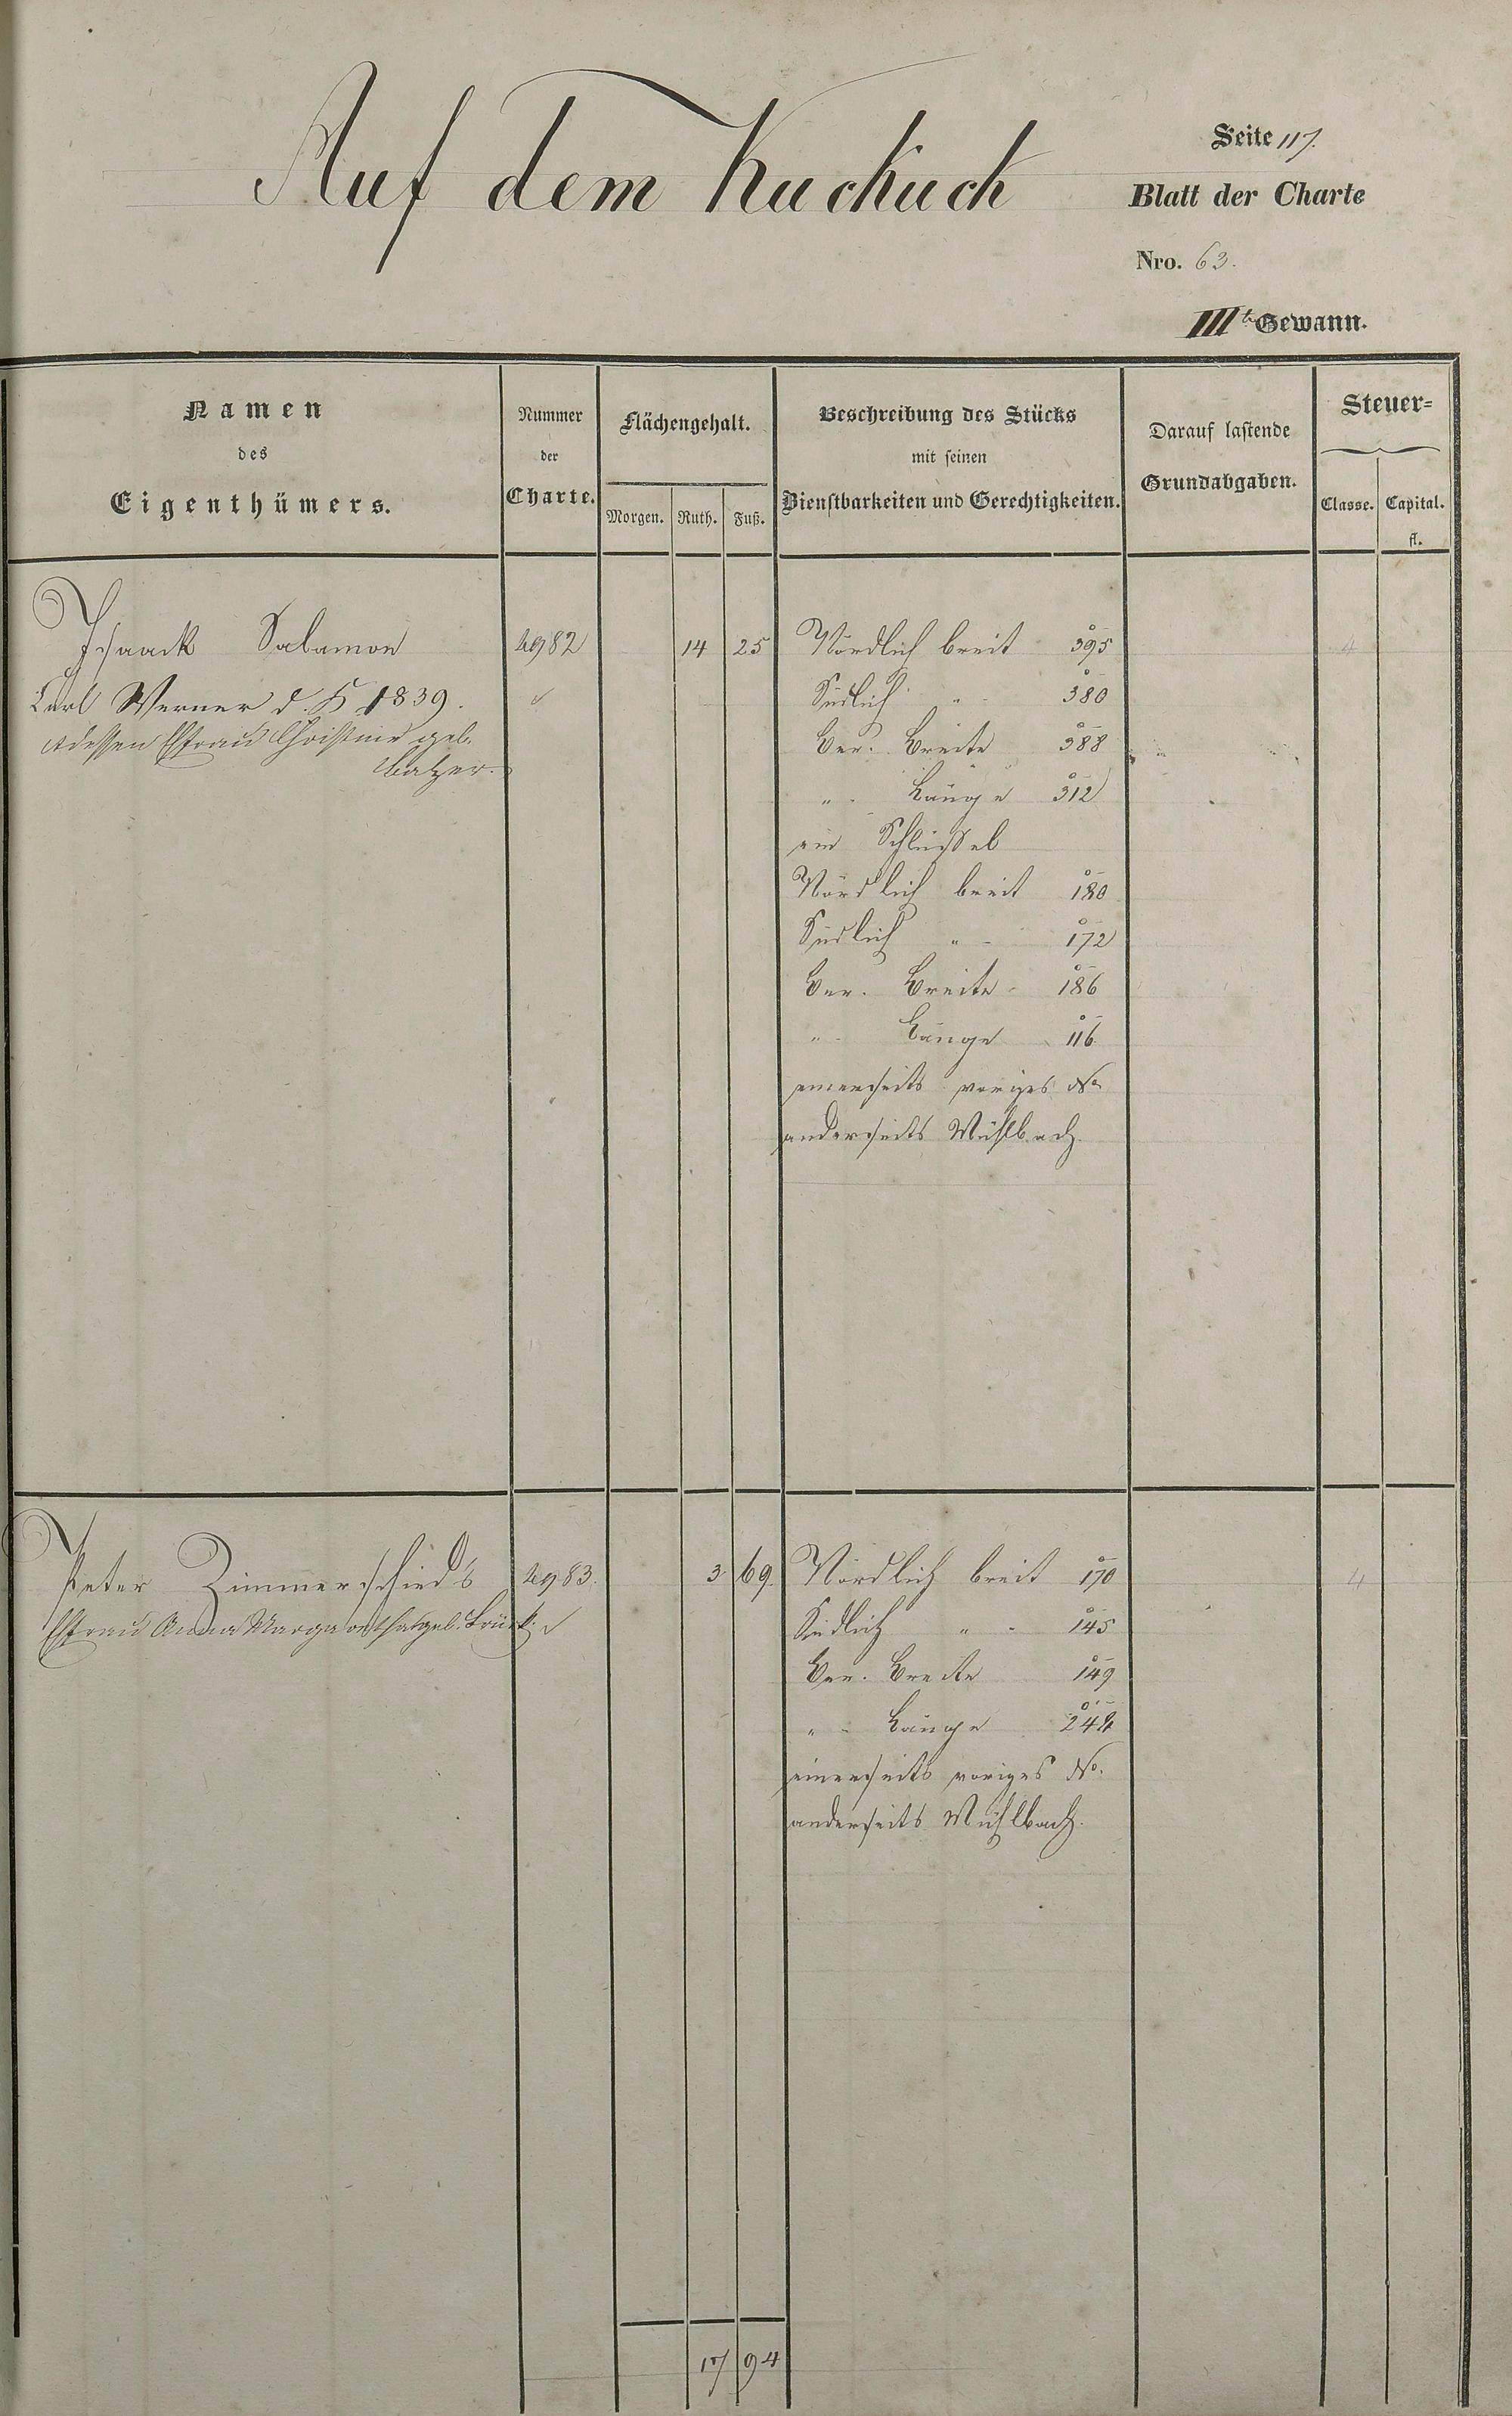 Auf dem Kuckuck
Seite 117.
Blatt der Charte
Nro. 63.
III.te Gewann.
Namen
des
Eigenthümers.
Nummer
der
Charte.
Flächengehalt.
Morgen. Ruth. Fuß.
Beschreibung des Stücks
mit seinen
Dienstbarkeiten und Gerechtigkeiten.
Darauf lastende
Grundabgaben.
Steuer=
Classe. Capital.
fl.
Isaack Salamon 4982 14 25 Nördlich breit 395 4
Carl Werner d. K 1839. Südlich " 380
dessen Ehfrau Christine geb. Ber. Breite 388
Balzer.
" Länge 312
ein Schlüssel
Nördlich breit 180
Südlich " 172
Ber. Breite 186
" Länge 116
einerseits voriges No
anderseits Mühlbach.
Peter Zimmerschied's 4983. 3 69. Nördlich breit 170 4
Ehfrau Anna Margaretha geb. Südlich " 145
Ber. Breite 149
" Länge 248
einerseits voriges No.
anderseits Mühlbach.
17 94